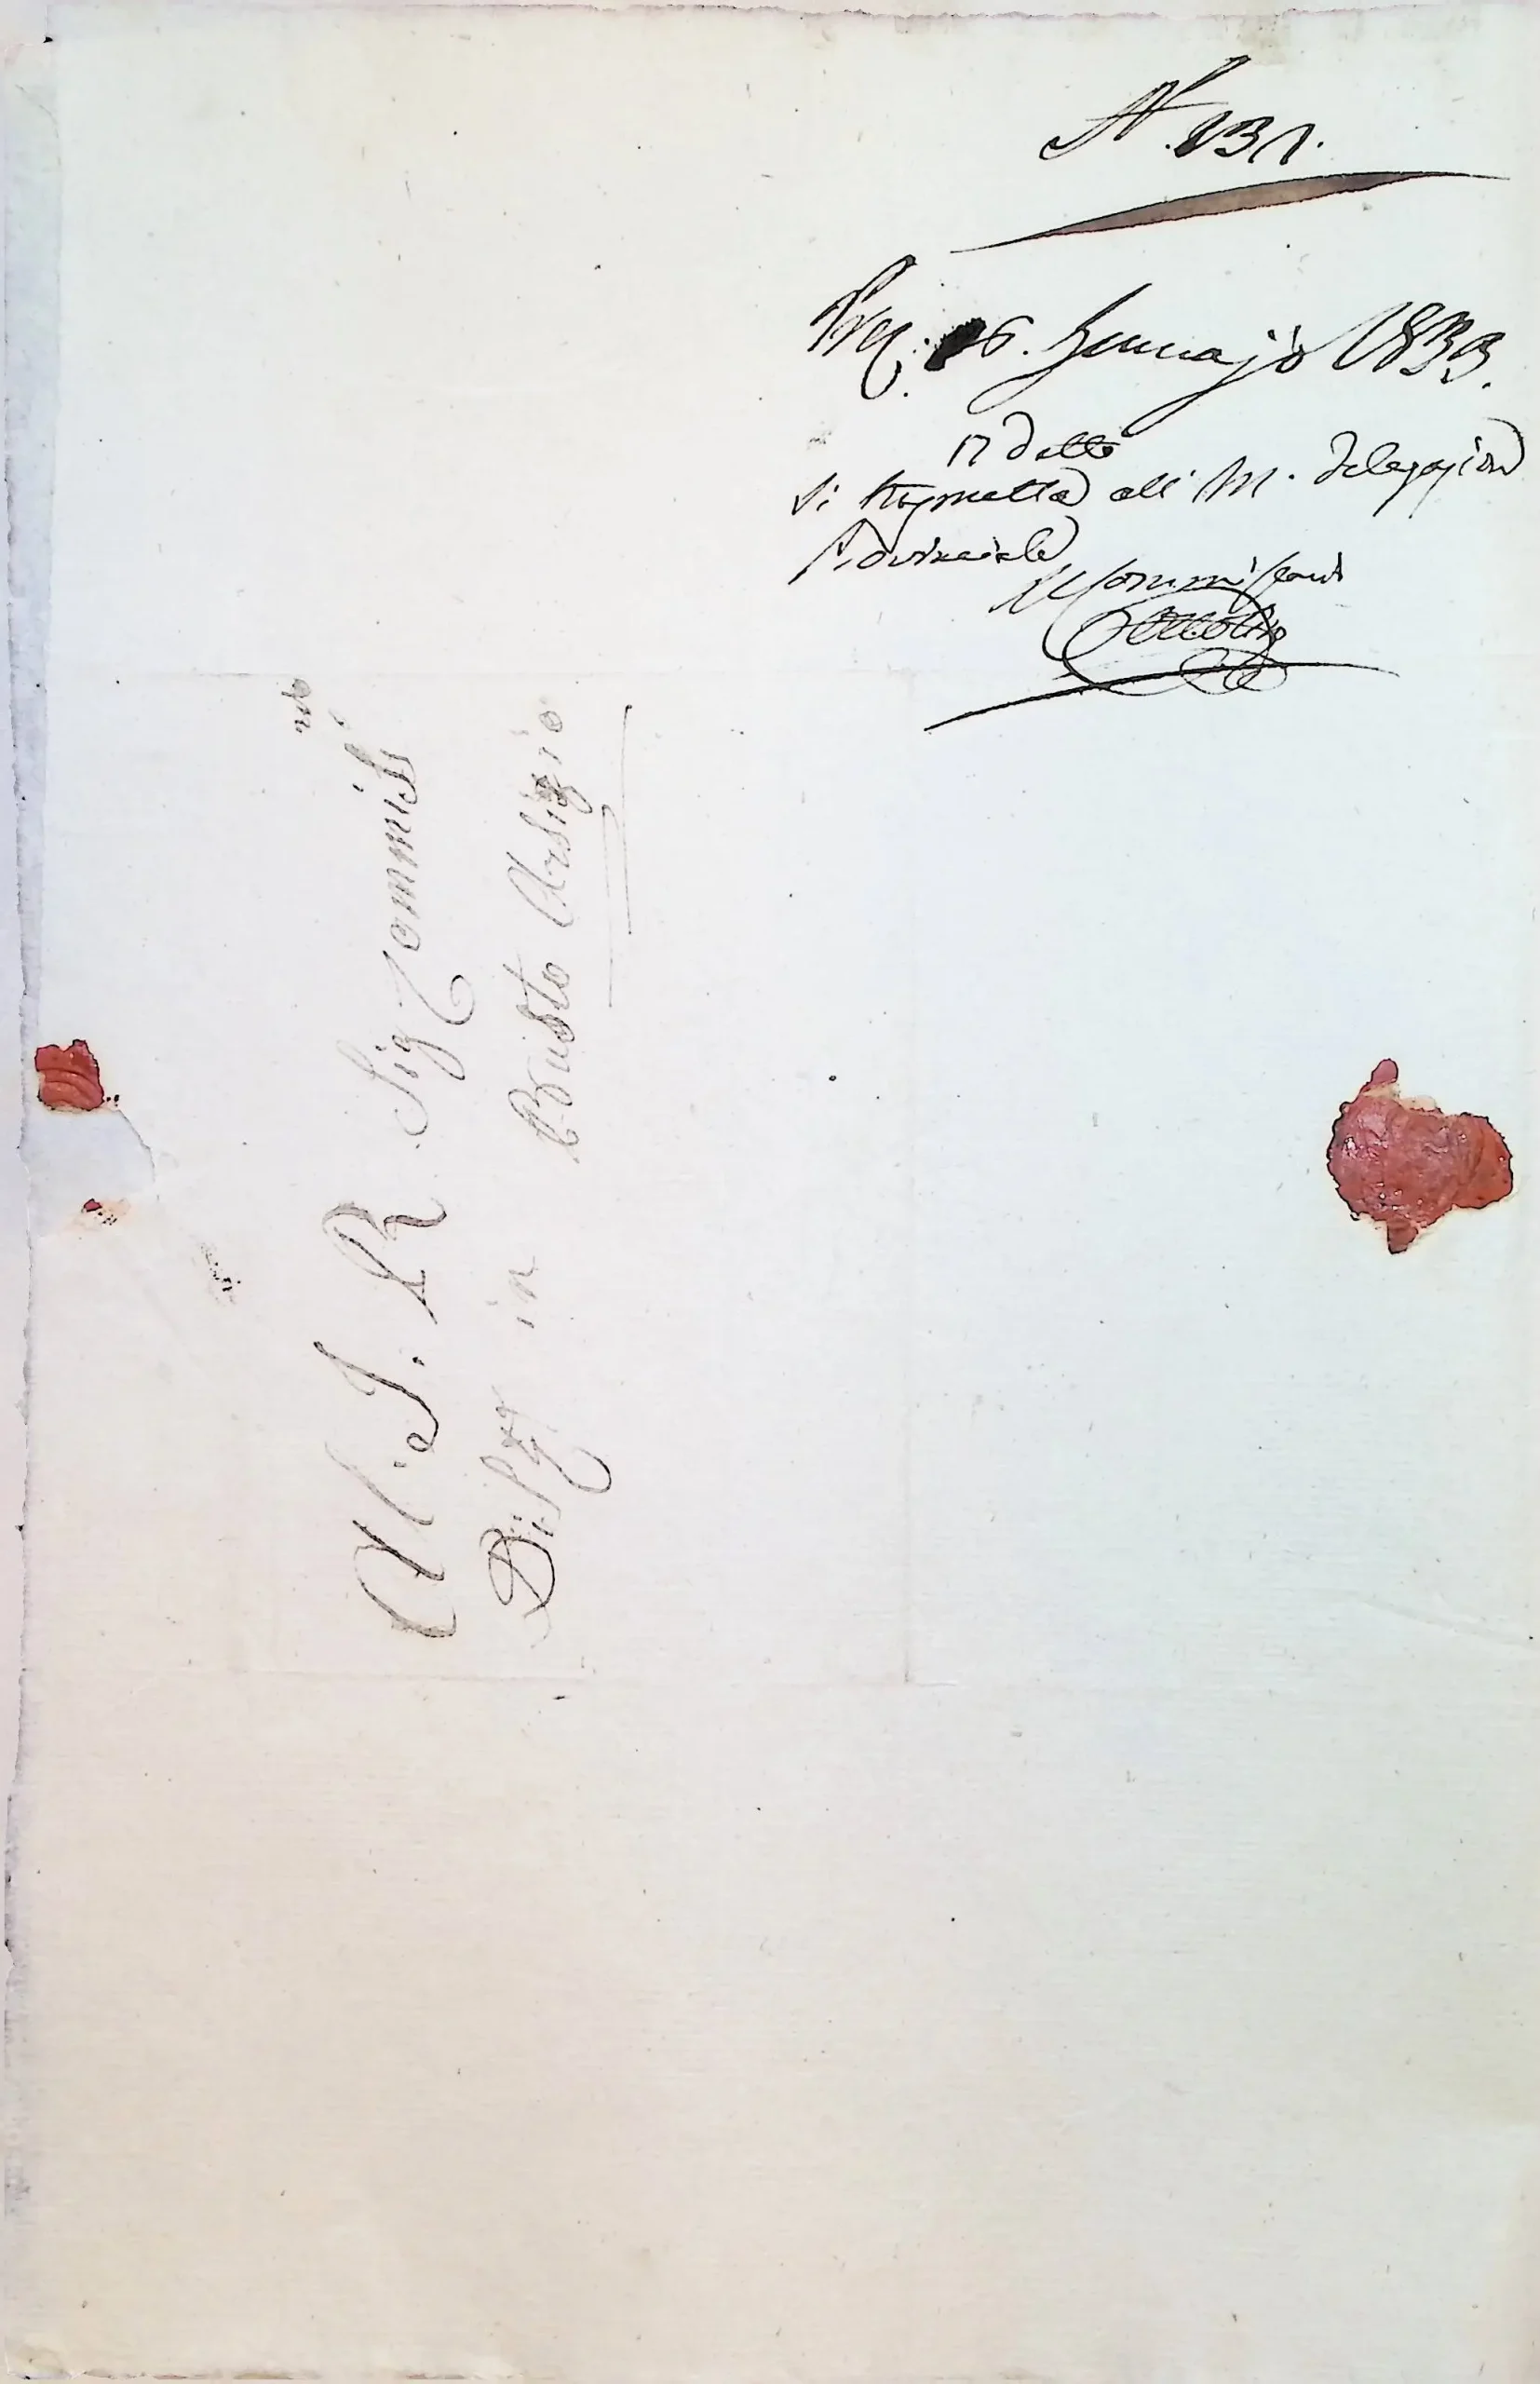 N. 131.
Prez. 16. Gennajo 1833.
17 detto
Si trasmetta all' I. R. Delegazione
Provinciale
Il Commissario
Al. I. R. Sig Commiss rio
Dist. in Busto Arsizio